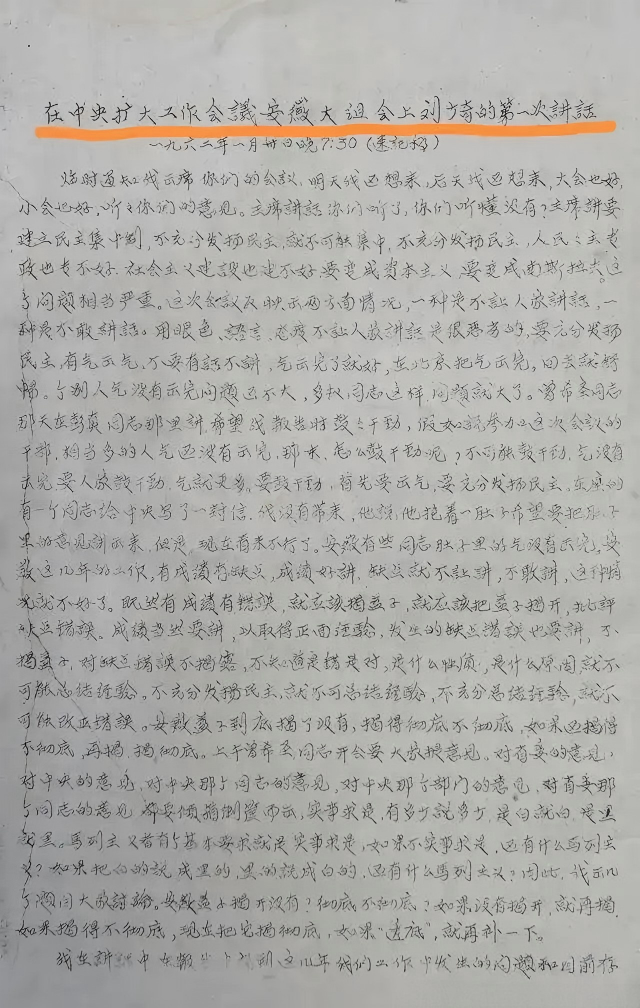 在中央扩大工作会議安徽大组会上刘少奇的第一次講話
一九六二年一月卅日晚7:30（速記稿）
临时通知我出席你们的会议，明天我还想来，后天我还想来，大会也好，
小会也好，听々你们的意见。主席講話你们听了，你们听懂没有？主席講要
建立民主集中制，不充分发扬民主，就不可能集中，不充分发扬民主，人民民主专
政也专不好，社会主义建設也建不好，要变成資本主义，要变成南斯拉夫，这
个问题相当严重。这次会议反映出两方面情况，一种是不让人家講話，一
种是不敢講話。用眼色、語言、态度不让人家講話是很恶劣的，要充分发扬
民主，有气出气，不要有話不讲，气出完了就好，在北京把气出完，回去就舒
暢。个别人气没有出完问题还不大，多数同志这样，问题就大了。曾希圣同志
那天在彭真同志那里讲，希望我報告时鼓々干劲，假如説参加这次会议的
干部，相当多的人气还没有出完，那末，怎么鼓干劲呢？不可能鼓干劲，气没有
出完要人家鼓干劲，气就更多，要鼓干劲，首先要出气，要充分发扬民主。在座的
有一个同志给中央写了一封信，我没有带来，他説，他抱着一肚子希望要把肚子
里的意见讲出来，但是，现在看来不行了。安徽有些同志肚子里的气没有出完，安
徽这几年的工作，有成績有缺点，成績好讲，缺点就不让讲，不敢讲，这种情
况就不好了。既然有成績有錯誤，就应該揭盖子，就应該把盖子揭开，批評
缺点錯誤。成績当然要讲，以取得正面经验，发生的缺点错误也要講，不
揭盖子，对缺点错误不揭露，不知道是错是对，是什么性质，是什么原因，就不
可能总结经验。不充分发揚民主，就不可总结经验，不充分总结经验，就不
可能改正错误。安徽盖子到底揭了没有，揭得彻底不彻底，如果还揭得
不彻底，再揭，揭彻底。上午曾希圣同志开会要大家提意见。对省委的意见，
对中央的意见，对中央那个同志的意见，对中央那个部门的意见，对省委那
个同志的意见，都要倾箱倒篋而出，实事求是，有多少説多少，是白就白，是黑
就黑。馬列主义者有个基本要求就是实事求是，如果不实事求是，还有什么馬列主
义？如果把白的説成黑的，黑的説成白的，还有什么馬列主义？因此，我出几
个题目大家討論。安徽盖子揭开没有？彻底不彻底？如果没有揭开，就再揭，
如果揭得不彻底，现在把它揭彻底，如果"透底"，就再补一下。
我在讲話中在報告上講到这几年我们工作中发生的问题和目前存